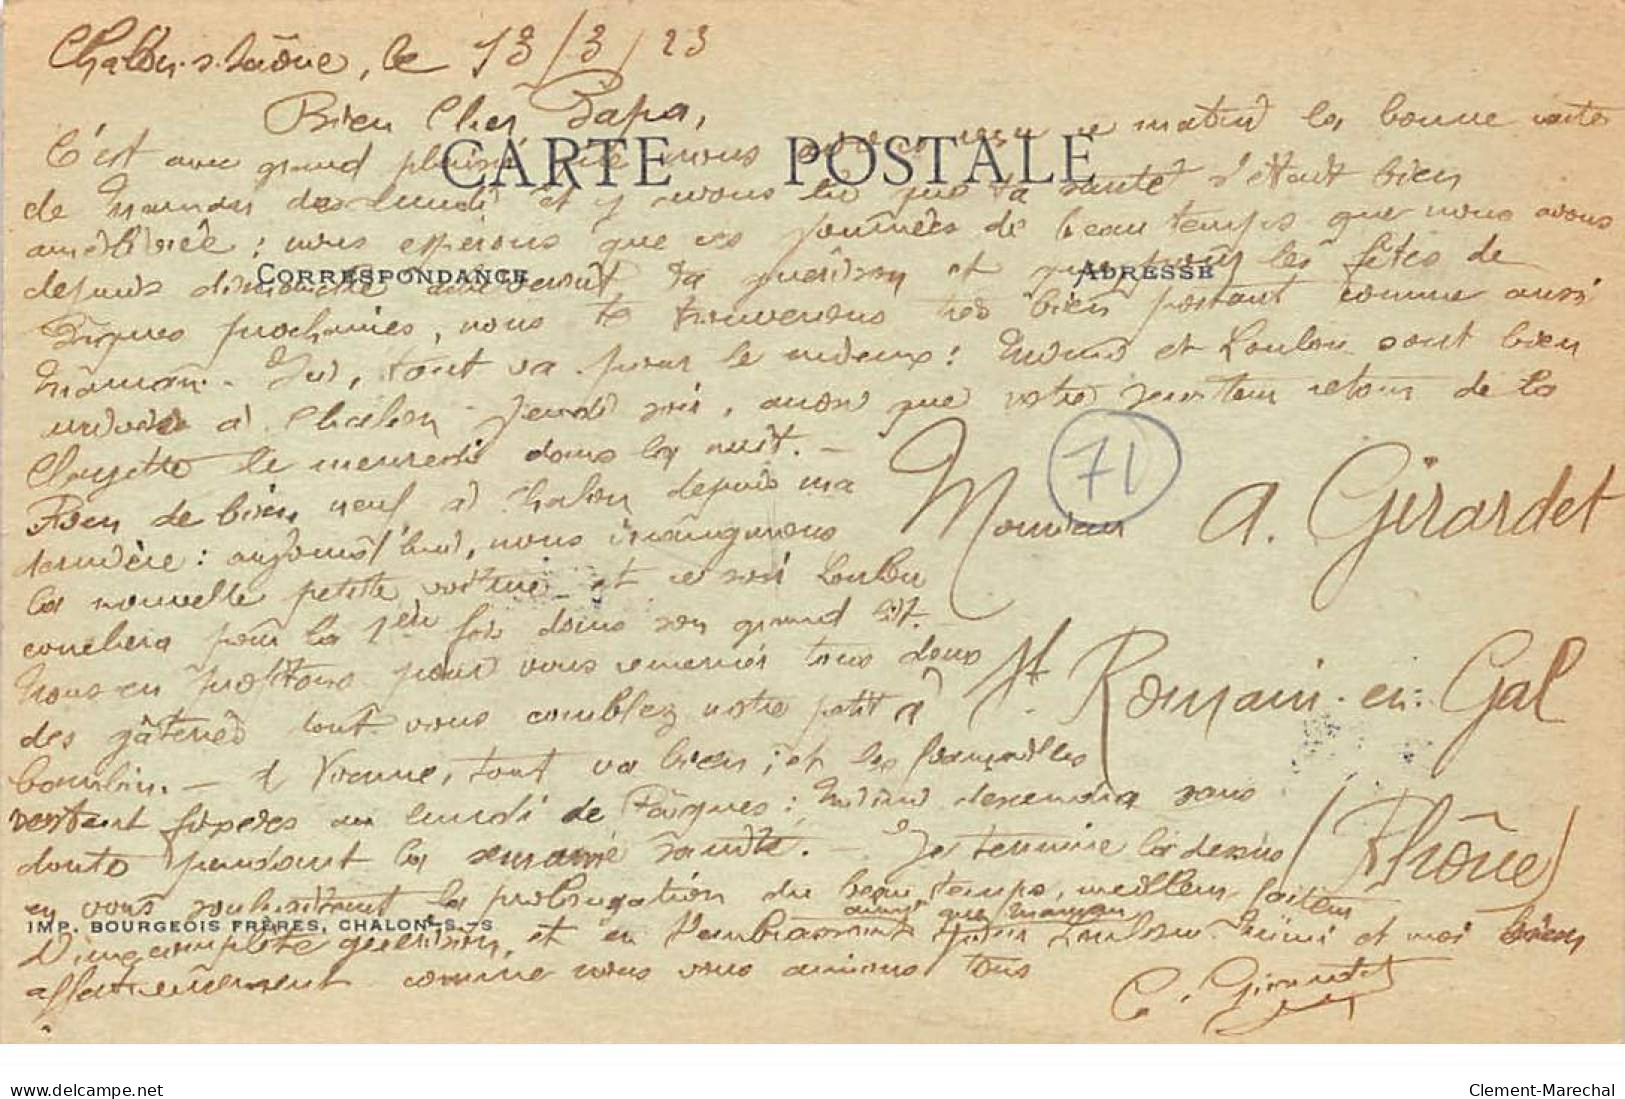 Chalon-s-Saône, le 13/3/23
Bien Cher Papa,
C'est avec grand plaisir que nous avons reçu ce matin la bonne carte
CARTE POSTALE
de Maman de lundi et y avons lu que ta santé s'étant bien
améliorée ; nous espérons que ces journées de beau temps que nous avons
CORRESPONDANCE ADRESSE
depuis dimanche achèveront ta guérison et que pour les fêtes de
Pâques prochaines, nous te trouverons très bien portant comme aussi
Maman. Ici, tout va pour le mieux ! Mimi et Loulou sont bien
arrivés à Chalon jeudi soir, ainsi que votre retour de la
Clayette le mercredi dans la nuit. —
Rien de bien neuf à Chalon depuis ma
dernière : aujourd'hui, nous inaugurons
la nouvelle petite voiture et ce soir Loulou
couchera pour la 1ère fois dans son grand lit. —
Nous en profitons pour vous remercier tous deux
des gâteries dont vous comblez notre petit
bambin. — A Vienne, tout va bien ; et les fiançailles
restent fixées au lundi de Pâques ; Mimi descendra sans
doute pendant la semaine sainte. — Je termine là dessus
en vous souhaitant la prolongation du beau temps, meilleur facteur
IMP. BOURGEOIS FRÈRES, CHALON-S.-S
D'une complète guérison, et en t'embrassant ainsi que Maman pour Loulou Mimi et moi bien
affectueusement comme nous vous aimons tous
C. Girardet
71
Monsieur A. Girardet
St. Romain-en-Gal
(Rhône)
delcampe.net
Clement-Marechal